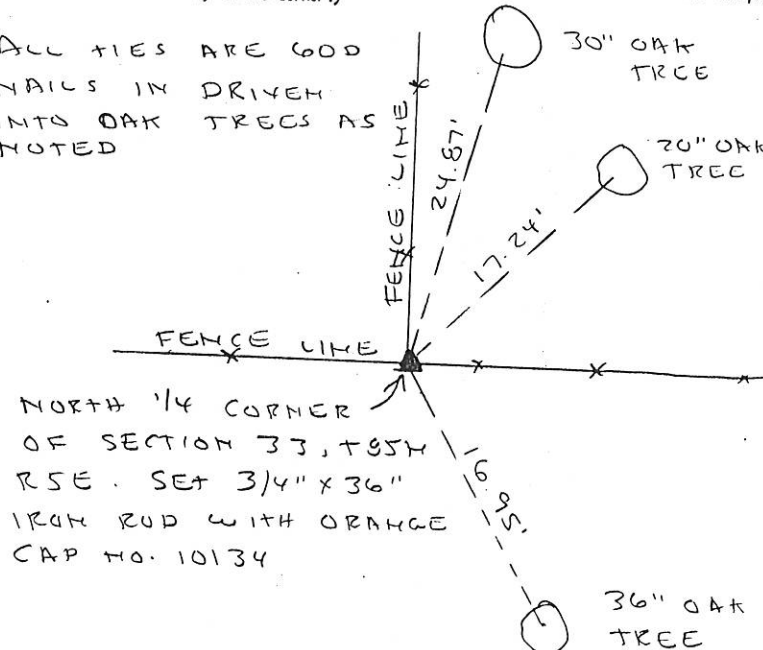 ALL TIES ARE 60D
NAILS IN DRIVEN
INTO OAK TREES AS
NOTED
30" OAK
TREE
20" OAK
TREE
FENCE LINE
24.87'
17.24'
FENCE LINE
NORTH 1/4 CORNER
OF SECTION 33, T95N
R5E. SET 3/4" X 36"
IRON ROD WITH ORANGE
CAP NO. 10134
16.95'
36" OAK
TREE